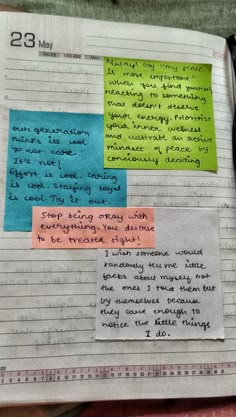 23 May
Always say "my peace
is more important"
when you find yourself
reacting to something
that doesn't deserve
your energy. Prioritise
your inner wellness
and cultivate an active
mindset of peace by
consciously deciding.
our generation
thinks its cool
to not care.
It's not!
Effort is cool. Caring
is cool. Staying loyal
is cool. Try it out.
Stop being okay with
everything. You deserve
to be treated right!
I wish someone would
randomly tell me little
facts about myself. Not
the ones I told them but
by themselves because
they care enough to
notice the little things
I do.